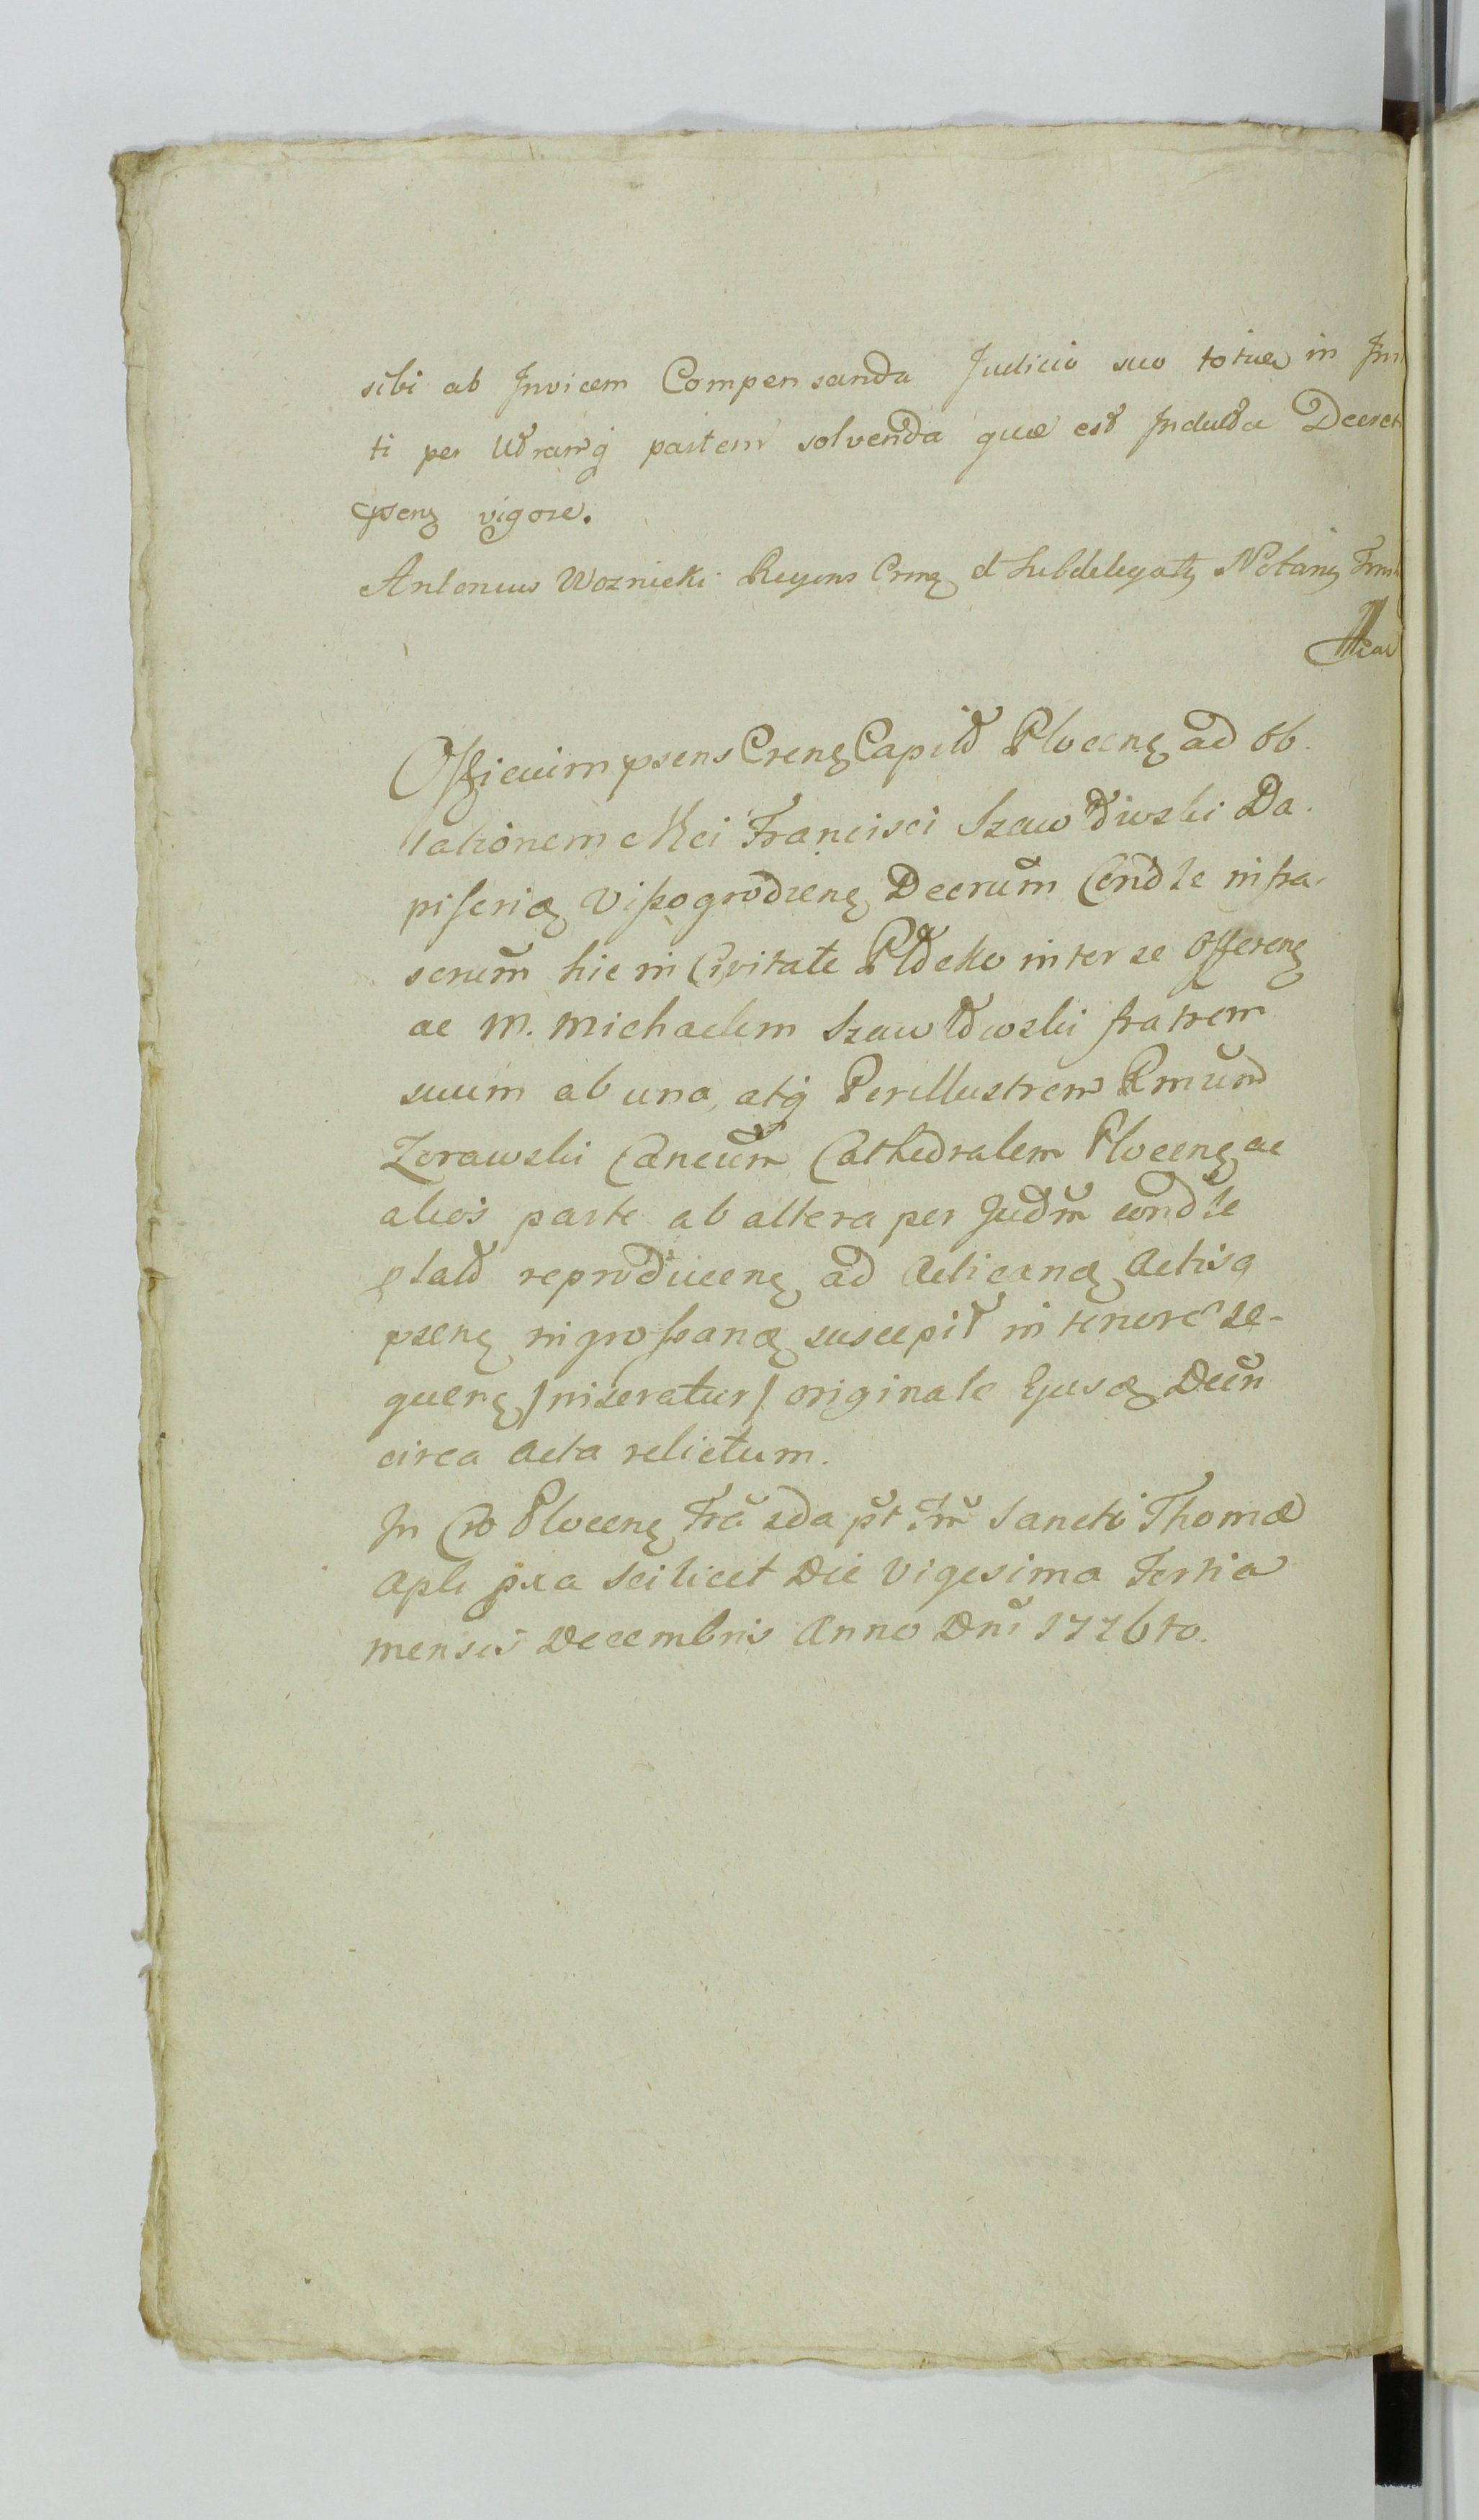 sibi ab Invicem Compensanda Judicio suo totuæ in
ti per Utramq partem solvenda quæ est Indulta Decret
psenę vigore.
Antonius Woznicki Regens Crenę et Subdelegatę Notarię

Officium psens Crenę Capitł Plocenę ad ob
lationem Mei Francisci Szawłowski Da
piferię Vissogrodzienę Decrum Condle infra
scrium hic in Civitate Płocko inter se offerenę
ac M. Michaelem Szawłowski fratrem
suum ab una, atq Perillustrem Rmum
Zorawski Cancum Cathedralem Plocenę ac
alios parte ab altera per Judm condle
platł reproducenę ad Acticanę Actisq
psenę ingrossanę suscepit in tenore se-
quenę /: inseratur :/ originale Ejusę Decn
circa Acta relictum.
In Cro Plocenę Fra 2da pt Fm Sancti Thomæ
Apli pxa Scilicet Die Vigesima Tertia
Mensis Decembris Anno Dni 1776to.